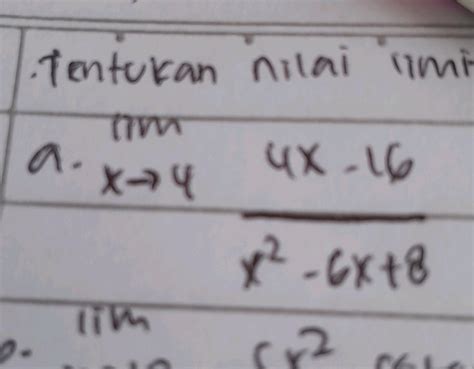 .Tentukan nilai limi
a. lim x→4 4x - 16
x² - 6x + 8
lim